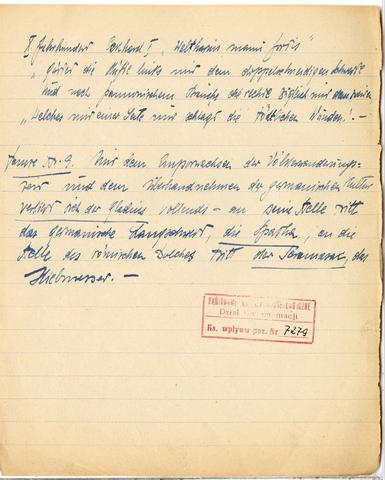 X Jahrhundert Ekkehard I, "Waltharius manu fortis"
"Gürtet die Hüfte links mit dem doppelschneidigen Schwerte
und nach pannonischem Brauch die rechte
"Welches mit einer Seite nur schlägt die tödtlichen Wunden". —
No. 9. Mit dem Emporwachsen der Völkerwanderungs-
zeit und dem Überhandnehmen der germanischen Kultur
verliert sich der gladius vollends — an seine Stelle tritt
das germanische Langschwert, die Spatha, an die
Stelle des römischen Dolches tritt der Scramasax, das
Hiebmesser. —
Dział
Ks. wpływu poz. Nr 7279